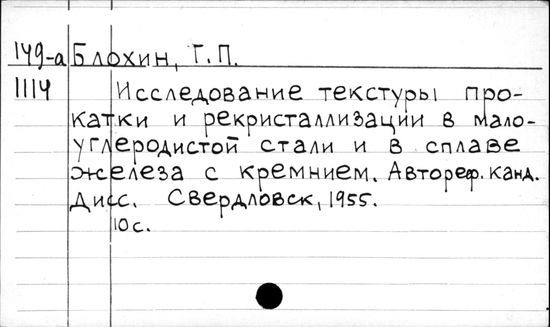 149-а Блохин, Г. П.
1114 Исследование текстуры про-
катки и рекристаллизации в мало-
углеродистой стали и в сплаве
железа с кремнием. Автореф. канд.
Дисс. Свердловск, 1955.
10 с.